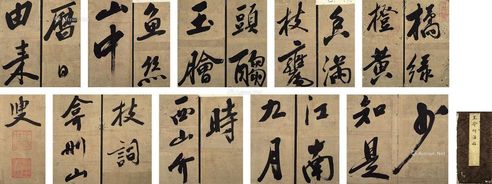 橘綠
橙黃
香滿
枝甕
頭
玉膾
魚絲
山中
曆日
由来
少
知是
江南
九月
時
西山竹
枝詞
弇州山
叟